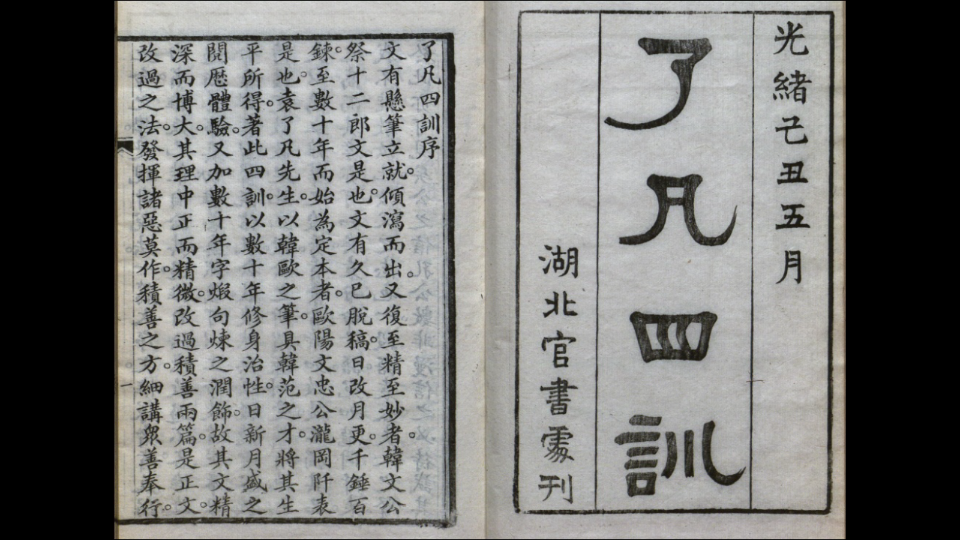 光緒己丑五月
了凡四訓
湖北官書處刊
了凡四訓序
文有懸筆立就。傾瀉而出。又復至精至妙者。韓文公
祭十二郎文是也。文有久已脫稿。日改月更。千錘百
鍊。至數十年而始為定本者。歐陽文忠公瀧岡阡表
是也。袁了凡先生。以韓歐之筆。具韓范之才。將其生
平所得。著此四訓。以數十年修身治性。日新月盛之
閱歷體驗。又加數十年字煅句煉之潤飾。故其文精
深而博大。其理中正而精微。改過積善兩篇。是正文
改過之法。發揮諸惡莫作。積善之方。細講眾善奉行。
一